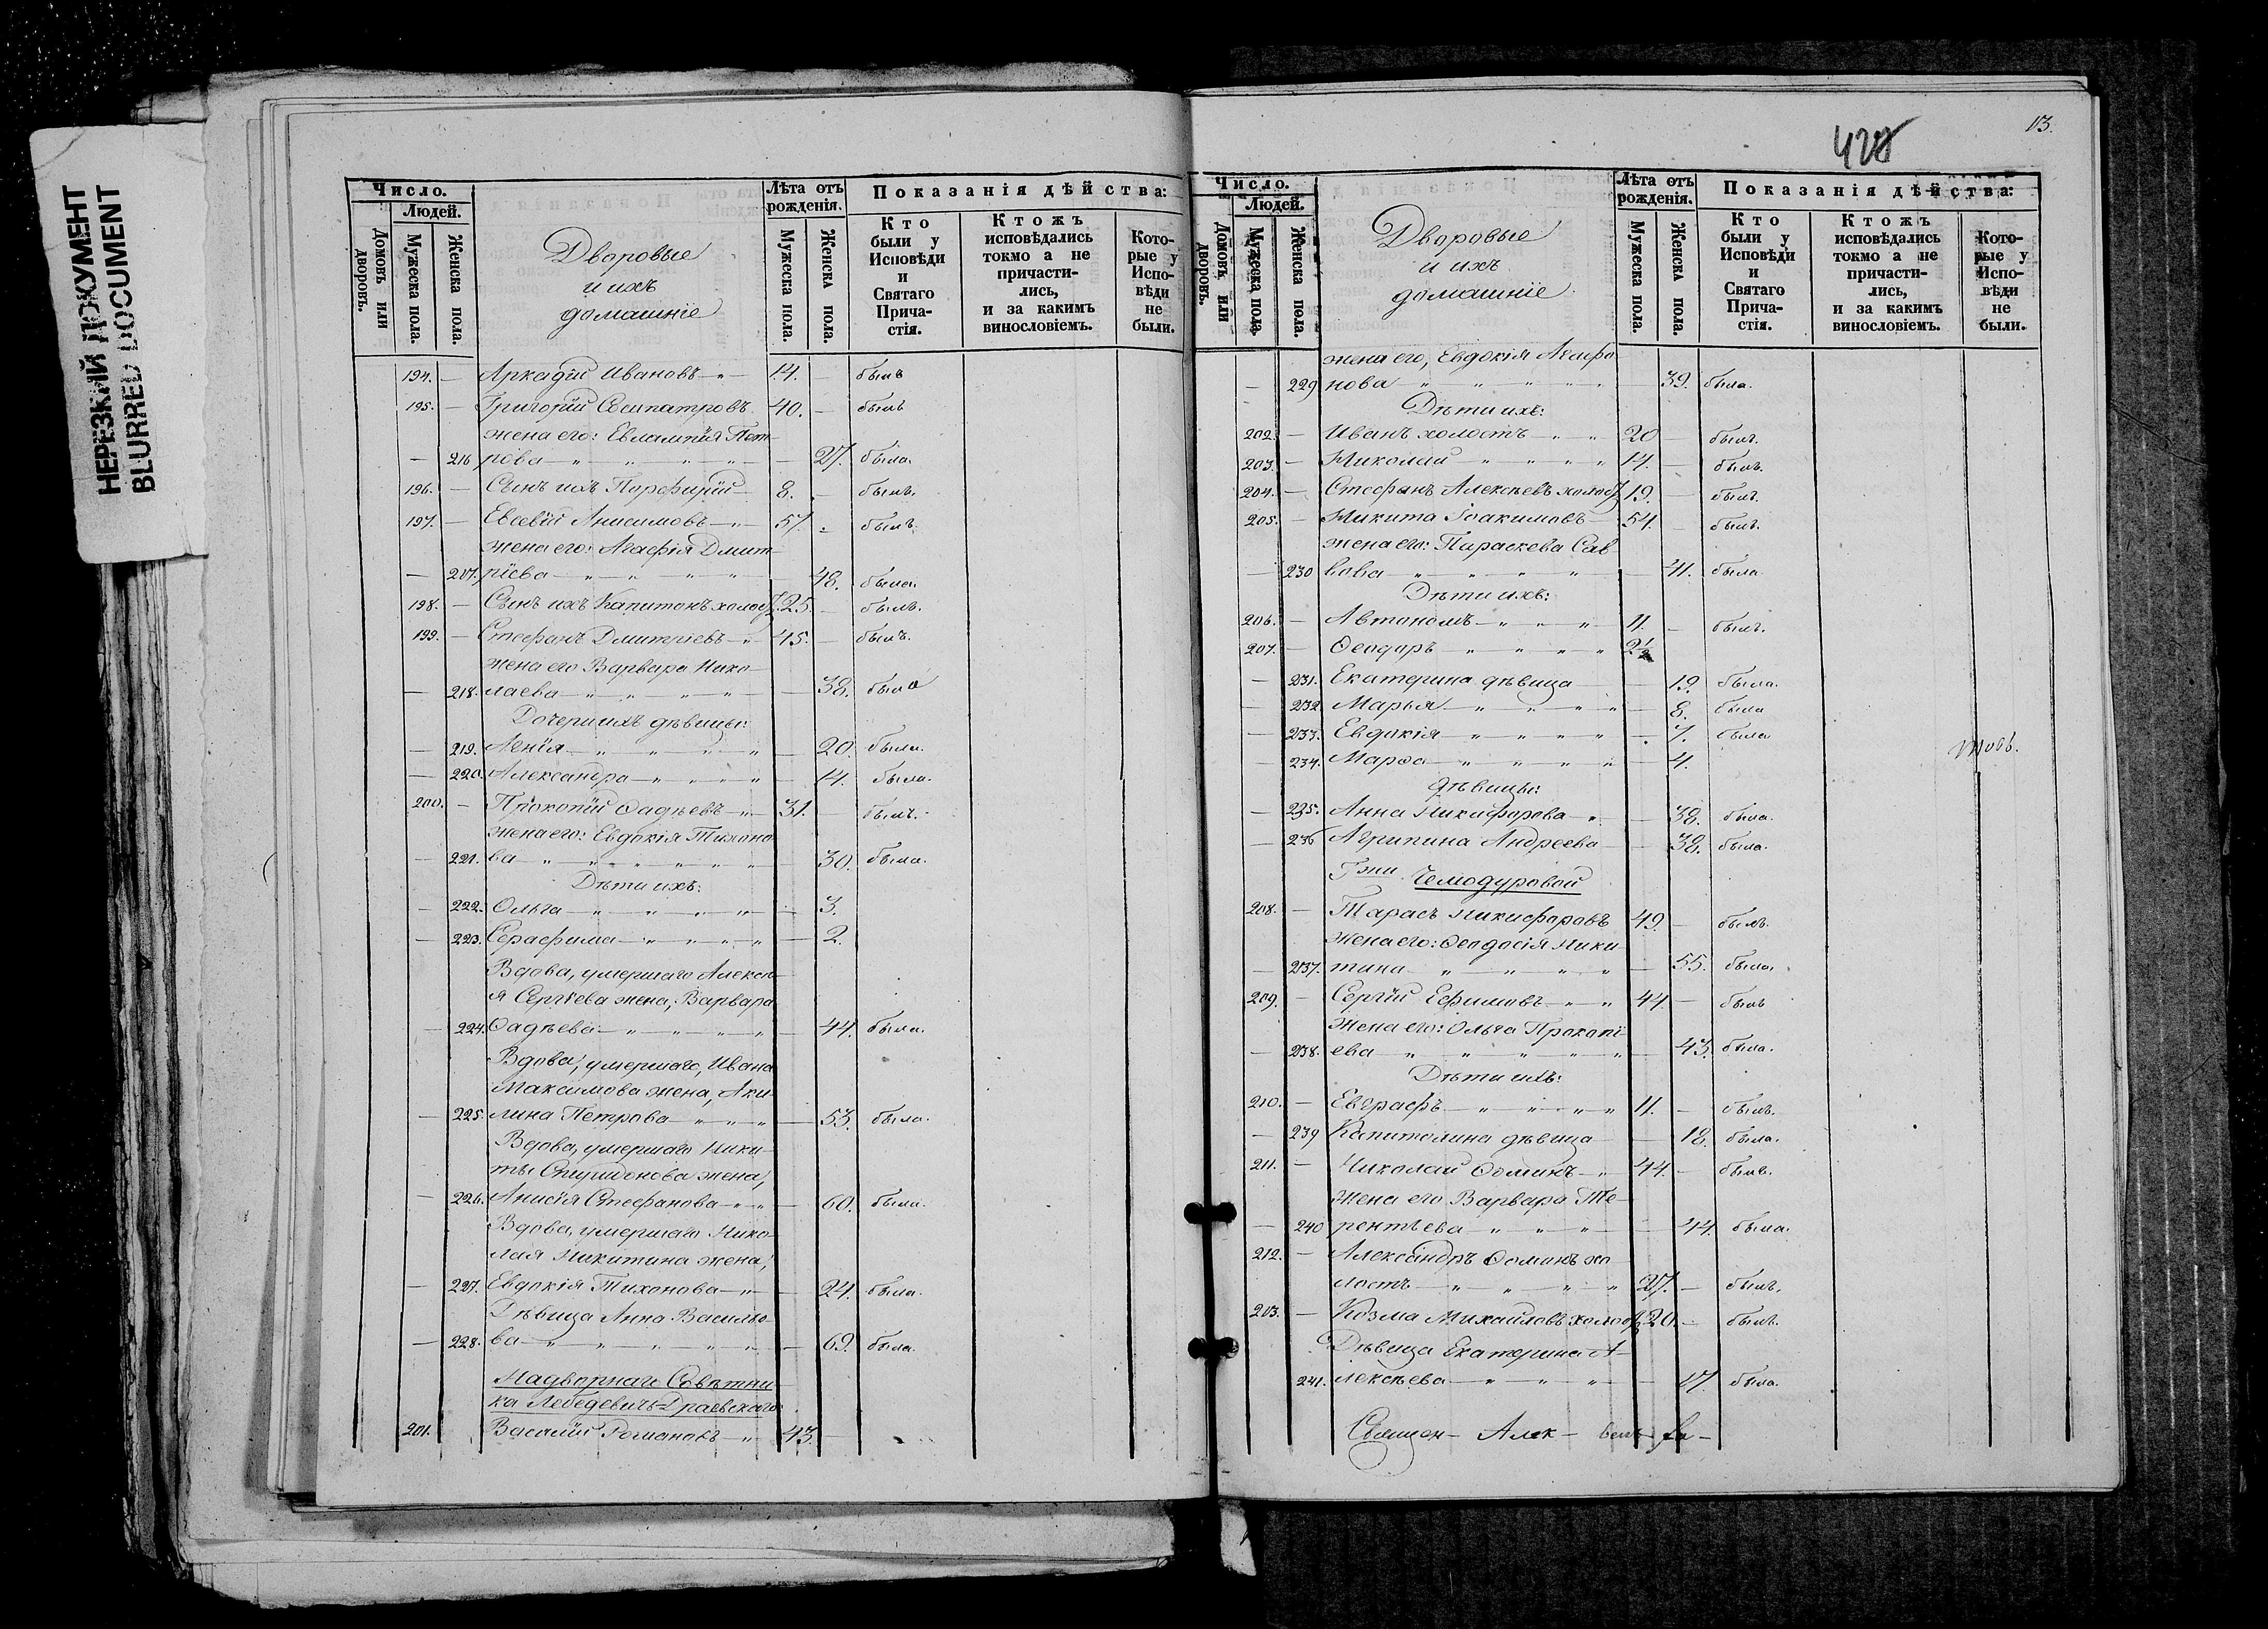 НЕРЕЗКИЙ ДОКУМЕНТ
BLURRED DOCUMENT
Число.
Людей.
Домовъ или дворовъ.
Мужеска пола.
Женска пола.
Дворовые
и ихъ
домашніе
Лѣта отъ рожденія.
Мужеска пола.
Женска пола.
Показанія дѣйства:
Кто были у Исповѣди и Святаго Прича-стія.
Ктожъ исповѣдались токмо а не причасти-лись, и за какимъ винословіемъ.
Кото-рые у Испо-вѣди не были.
194. — Аркадій Ивановъ — 14. — былъ
195. — Григорій Сосипатровъ 40. — былъ
жена его: Евлампія Пет-
— 216 рова — " — " — " — " — 27. была.
196. — Сынъ ихъ Порфирій — 8. былъ.
197. — Евсевій Анисимовъ — " — 57. былъ.
жена его: Агафія Дмит-
— 207. ріева — " — " — " — " — 48. была.
198. — Сынъ ихъ Капитонъ холос. 25. — былъ.
199. — Стефанъ Дмитріевъ — " 45. — былъ.
жена его Варвара Нико-
— 218. лаева — " — " — " — " — 38. была
Дочери ихъ дѣвицы:
— 219. Ленія — " — " — " — " — 20. была.
— 220. Александра — " — " — " — 14. была.
200. — Прокопій Фадѣевъ — " — 31. былъ.
жена его: Евдокія Тихоно-
— 221. ва — " — " — " — " — " — 30. была.
Дѣти ихъ:
— 222. Ольга — " — " — " — " — 3.
— 223. Серафима — " — " — " — " — 2.
Вдова, умершаго Алексѣ-
я Сергѣева жена, Варвара
— 224. Фадѣева — " — " — " — " — 44. была.
Вдова, умершаго, Ивана
Максимова жена, Аки-
— 225. лина Петрова — " — " — " — 53. была.
Вдова, умершаго Ники-
ты Спиридонова жена,
— 226. Анисія Стефанова — " — " — 60. была.
Вдова, умершаго Нико-
лая Никитина жена,
— 227. Евдокія Тихонова — " — 24. была.
Дѣвица Анна Василье-
— 228. ва — " — " — " — " — " — 69. была.
Надворнаго Совѣтни-
ка Лебедевичъ-Драевскаго:
201. Василій Романовъ — " — 43. —
13.
428
Число.
Людей.
Домовъ или дворовъ.
Мужеска пола.
Женска пола.
Дворовые
и ихъ
домашніе.
Лѣта отъ рожденія.
Мужеска пола.
Женска пола.
Показанія дѣйства:
Кто были у Исповѣди и Святаго Прича-стія.
Ктожъ исповѣдались токмо а не причасти-лись, и за какимъ винословіемъ.
Кото-рые у Испо-вѣди не были.
жена его, Евдокія Агафо-
— 229 нова " " " " " — 39. была.
Дѣти ихъ:
202. — Иванъ холостъ — " — " 20 — былъ.
203. — Николай — " " " " 14. — былъ.
204. — Стефанъ Алексѣевъ холос. 19. — былъ.
205. — Никита Іоакимовъ — 54. — былъ.
жена его: Параскева Сав-
— 230 вова " " " " — 41. была
Дѣти ихъ:
206. — Автономъ — " — " — " 11. — былъ.
207. — Ѳеодоръ — " " " " 2½
— 231. Екатерина дѣвица — 19. была.
— 232 Марья — " — " — " — " — 8. была
— 233. Евдокія — " " " " 7. была
— 234. Марѳа — " " " " — 4. тоже.
дѣвицы:
— 235. Анна Никифорова — " — 38. была.
— 236 Агрипина Андреева — 38. была.
Гжи Чемодуровой
208. — Тарасъ Никифоровъ 49. — былъ.
жена его: Ѳеодосія Ники-
— 237. тина " " " " — 55. была.
209. — Сергій Ефимовъ — " — " 44. — былъ
жена его: Ольга Прокопі-
— 238. ева " " " " " — 43. была.
Дѣти ихъ:
210. — Евграфъ — " — " — " — " 11. — былъ.
— 239 Капитолина дѣвица — 18. была.
211. — Николай Ѳоминъ — " 44. — былъ.
жена его Варвара Те-
— 240 рентьева " " " — 44. была.
212. — Александръ Ѳоминъ хо-
лостъ — " — " — " " 27. — былъ.
203. — Козма Михайловъ холос. 20. — былъ.
Дѣвица Екатерина А-
241. лексѣева — " — " — " — 17. была.
Священ- Алек-